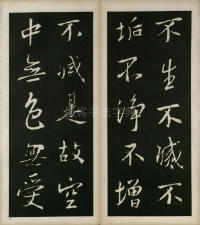 不生不滅不
垢不淨不增
不減是故空
中無色無受